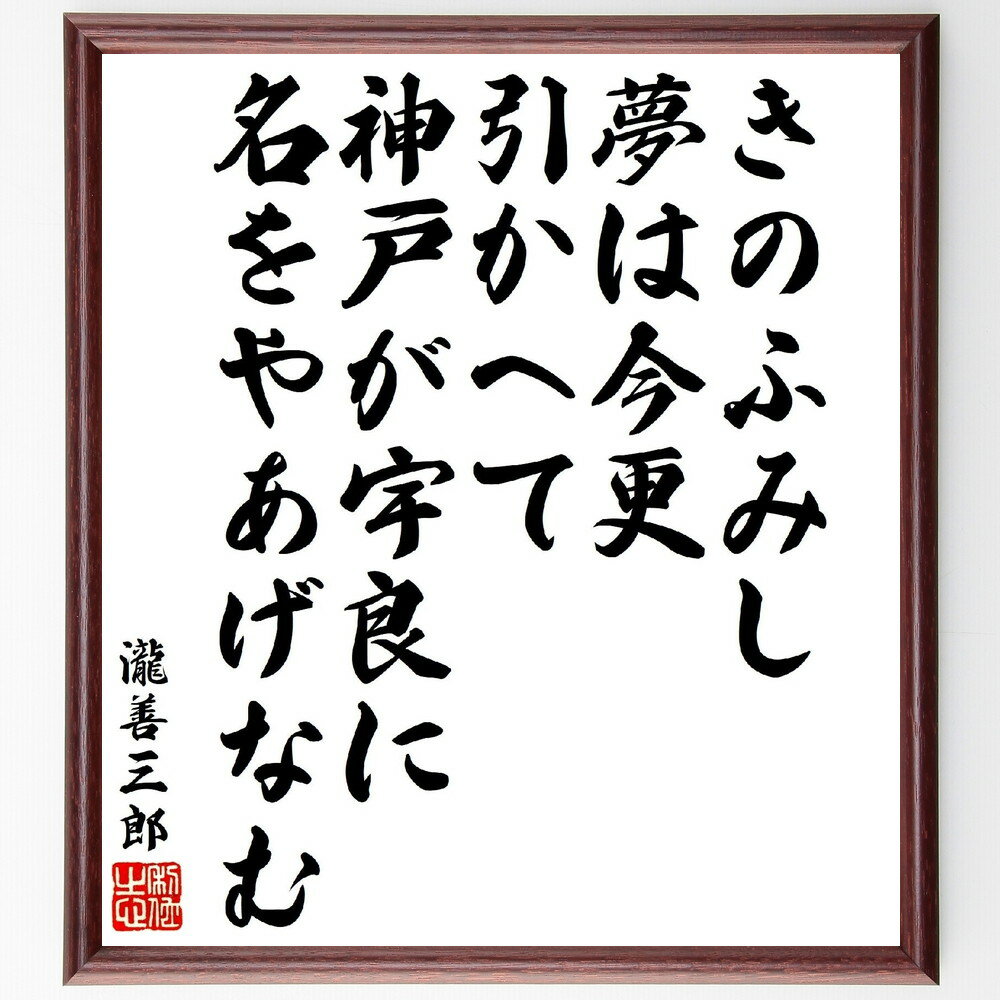 きのふみし
夢は今更
引かへて
神戸が宇良に
名をやあげなむ
瀧善三郎